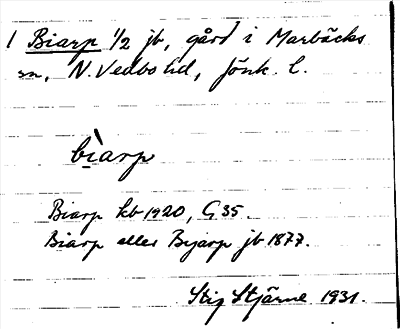 1 Biarp 1/2 jb, gård i Marbäcks
sn, N. Vedbo hd, Jönk. l.
bìarp
Biarp kb 1920, G 35.
Biarp eller Bjarp jb 1877.
Stig Stjärne 1931.